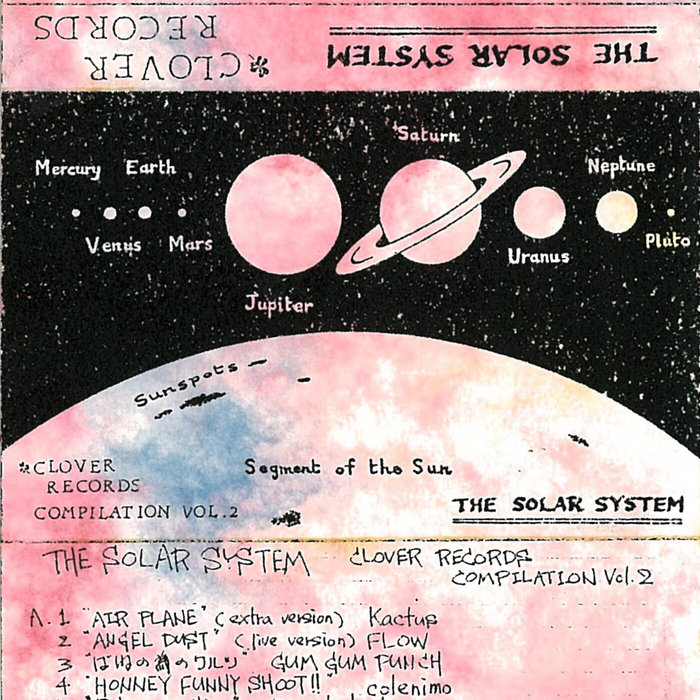 THE SOLAR SYSTEM
*CLOVER
RECORDS
Saturn
Mercury Earth Neptune
Venus Mars Uranus Pluto
Jupiter
Sunspots
*CLOVER
RECORDS
COMPILATION VOL.2
Segment of the Sun
THE SOLAR SYSTEM
THE SOLAR SYSTEM CLOVER RECORDS
COMPILATION Vol.2
A.1 "AIR PLANE" (extra version) Kactus
2 "ANGEL DUST" (live version) FLOW
3 "はねの為のワルツ" GUM GUM PUNCH
4 "HONNEY FUNNY SHOOT!!" colenimo